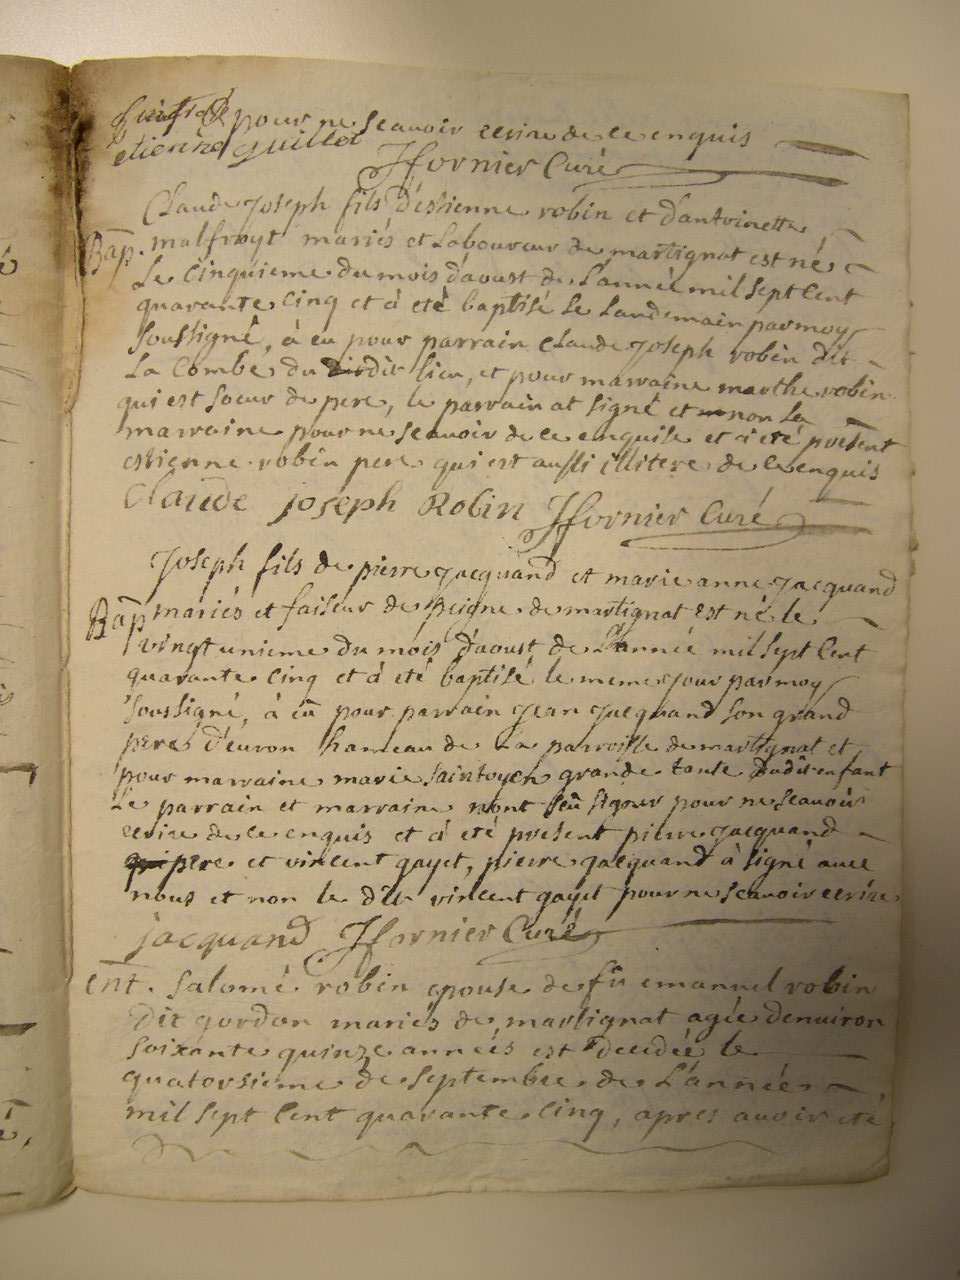 pour ne scavoir ecrire de ce enquis
etienne guillot
Jfornier Curé
Claude Joseph fils d'éstienne robin et d'antoinette
Bap. malfroyt mariés et Laboureur de martignat est né
Le Cinquieme du mois d'aoust de L'année mil sept Cent
quarante Cinq et à eté baptisé Le Landemain par moy
soussigné, à eu pour parrain Claude Joseph robin dit
La Combe du dit lieu, et pour marraine marthe robin
qui est soeur de pere, le parrain at signé et non la
marraine pour ne scavoir de ce enquise et à eté présent
estienne robin pere qui est aussi illitere de ce enquis
Claude joseph Robin Jfornier Curé
Joseph fils de pierre Jacquand et marie anne Jacquand
Bap mariés et faiseur de peigne de martignat est né le
vingt unieme du mois d'aoust de L'année mil sept Cent
quarante Cinq et à eté baptisé le meme jour par moy
soussigné, à eü pour parrain Jean Jacquand son grand
pere d'euron hameau de La parroisse de martignat et
pour marraine marie saintoyen grande tante dudit enfant
Le parrain et marraine n'ont seü signer pour ne scavoir
ecrire de ce enquis et à eté présent pierre Jacquand
pere et vincent gayet, pierre jacquand à signé avec
nous et non le dit vincent gayet pour ne scavoir ecrire
jacquand Jfornier Curé
ent. Salomé robin epouse de fû emanuel robin
dit gordon mariés de martignat agée denuiron
soixante quinze années est decedée le
quatorsieme de septembre de L'année
mil sept Cent quarante Cinq, apres auoir eté